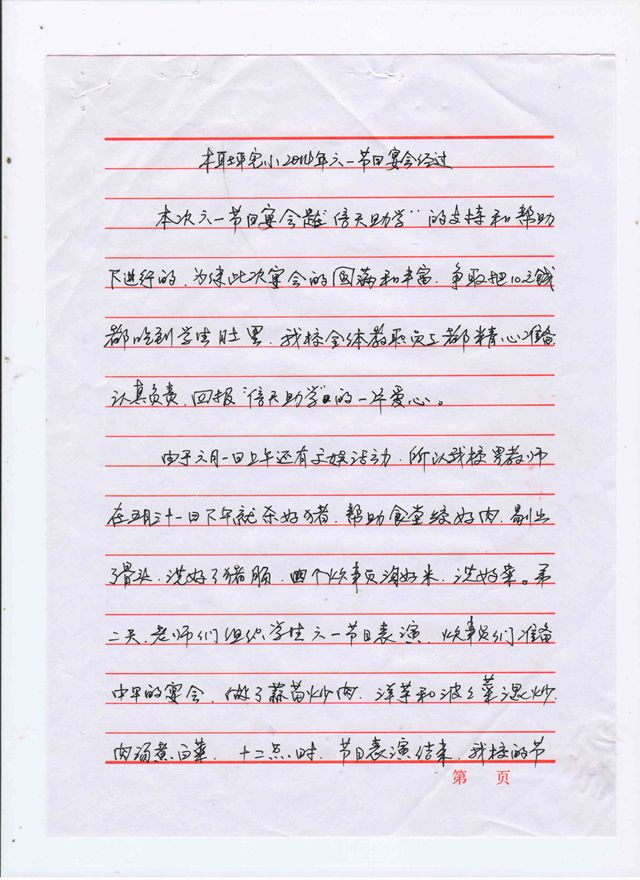 本职坪完小2014年六一节日宴会经过
本次六一节日宴会是"信天助学"的支持和帮助
下进行的,为使此次宴会的圆满和丰富,争取把10元钱
都吃到学生肚里,我校全体教职员工都精心准备
认真负责,回报"信天助学"的一片爱心。
由于六月一日上午还有文娱活动,所以我校男教师
在五月三十一日下午就杀好猪,帮助食堂绞好肉,剔出
骨头,洗好了猪肠,四个炊事员淘好米,洗好菜。第
二天,老师们组织学生六一节目表演,炊事员们准备
中午的宴会,做了蒜苗炒肉,洋芋和波菜混炒
肉汤煮白菜,十二点时,节目表演结束,我校的节
第 页